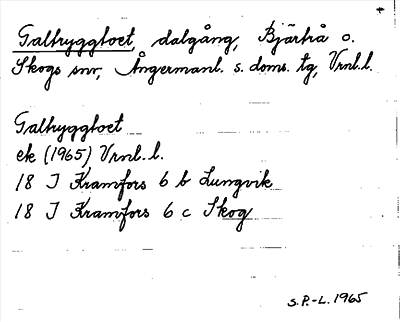 Galtryggtoet, dalgång, Bjärtrå o.
Skogs snr, Ångermanl. s. doms. tg, Vrnl.l.
Galtryggtoet
ek (1965) Vrnl.l.
18 I Kramfors 6 b Lungvik
18 I Kramfors 6 c Skog
S.P.-L. 1965